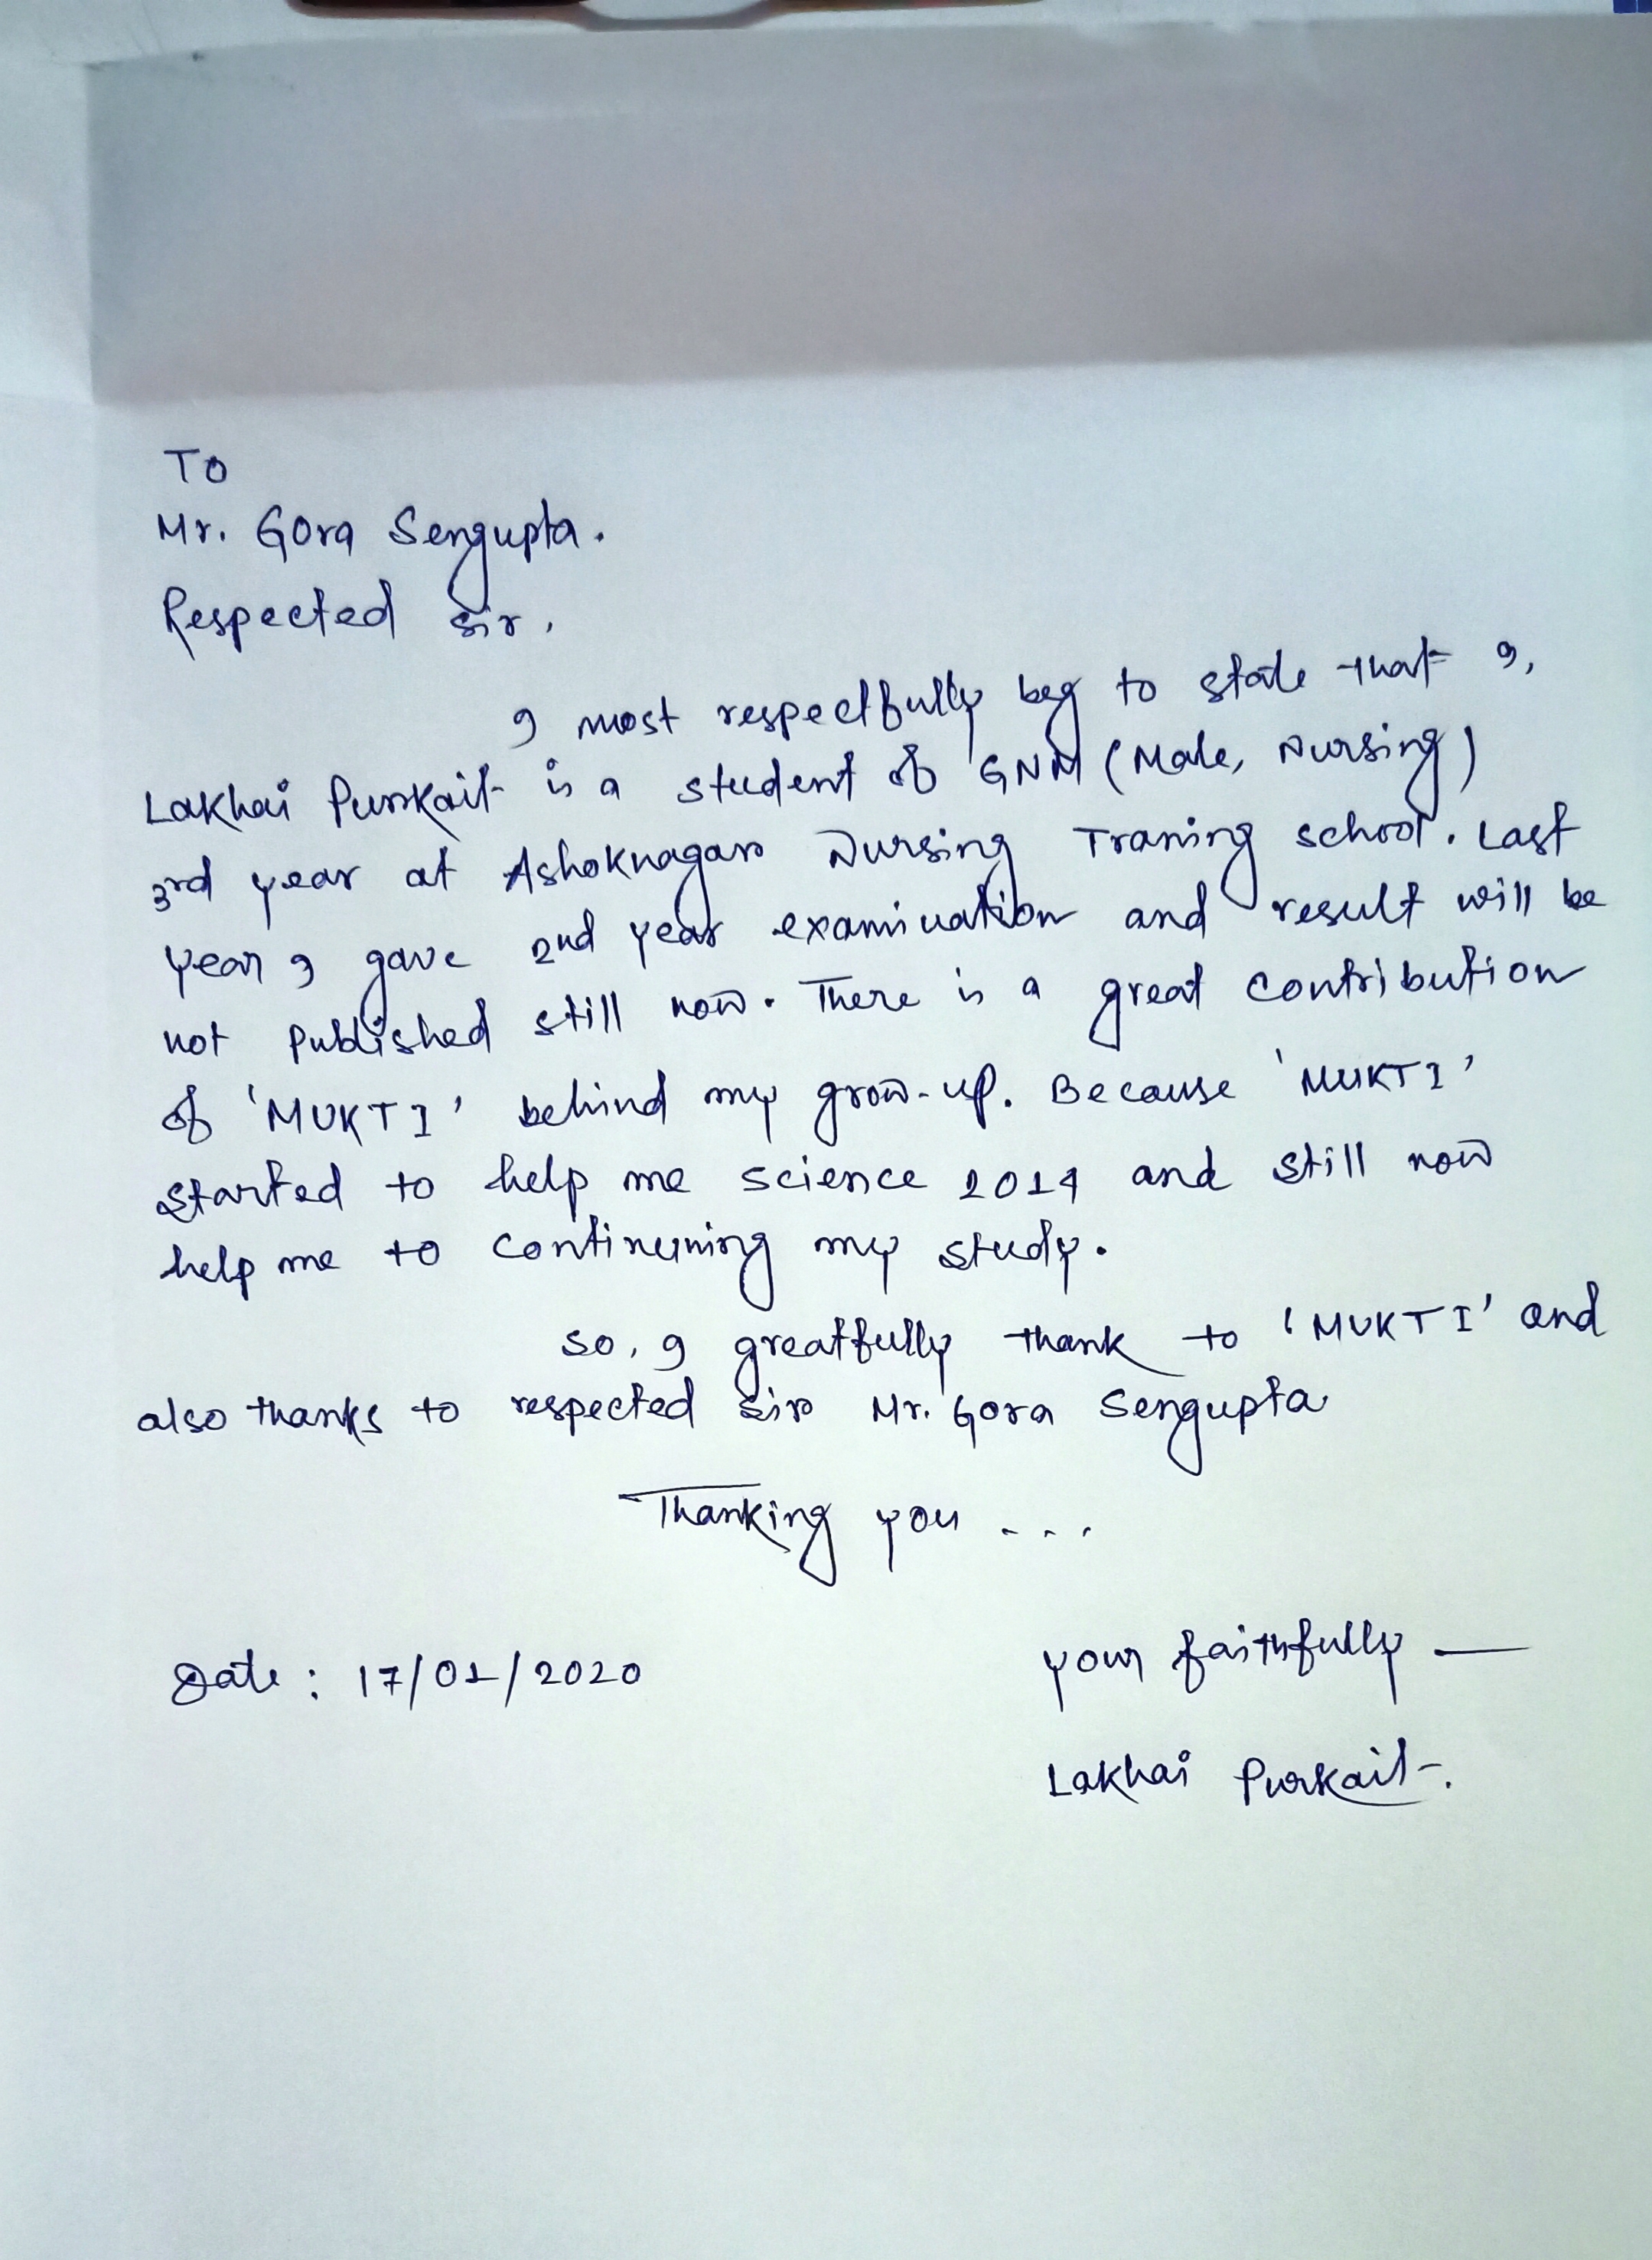 To
Mr. Gora Sengupta.
Respected sir,
I most respectfully beg to state that I,
Lakhai Purkait is a student of GNM (Male, Nursing)
3rd year at Ashoknagar Nursing Traning school. Last
year I gave 2nd year examination and result will be
not published still now. There is a great contribution
of 'MUKTI' behind my grow-up. Because 'MUKTI'
started to help me science 2014 and still now
help me to continuning my study.
So, I greatfully thank to 'MUKTI' and
also thanks to respected sir Mr. Gora Sengupta
Thanking you ...
Date : 17/01/2020
your faithfully —
Lakhai Purkait.